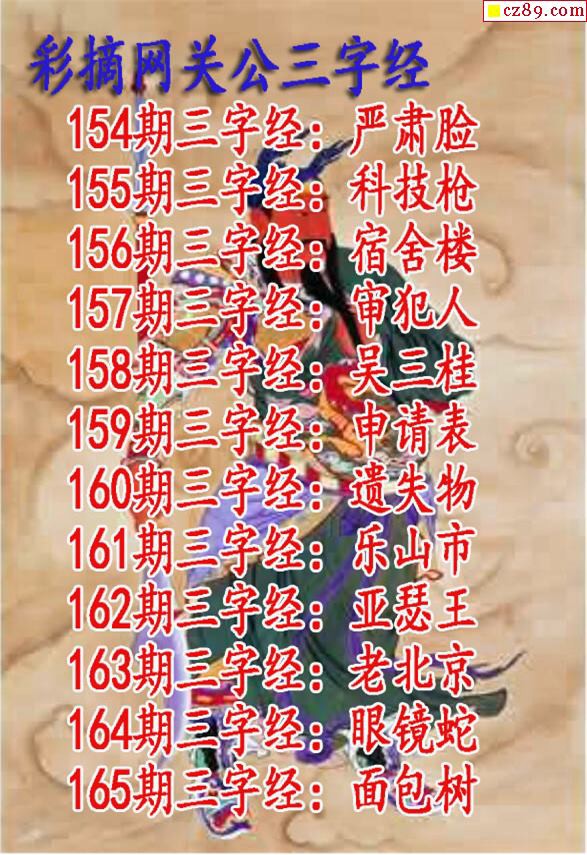 cz89.com
彩摘网关公三字经
154期三字经：严肃脸
155期三字经：科技枪
156期三字经：宿舍楼
157期三字经：审犯人
158期三字经：吴三桂
159期三字经：申请表
160期三字经：遗失物
161期三字经：乐山市
162期三字经：亚瑟王
163期三字经：老北京
164期三字经：眼镜蛇
165期三字经：面包树